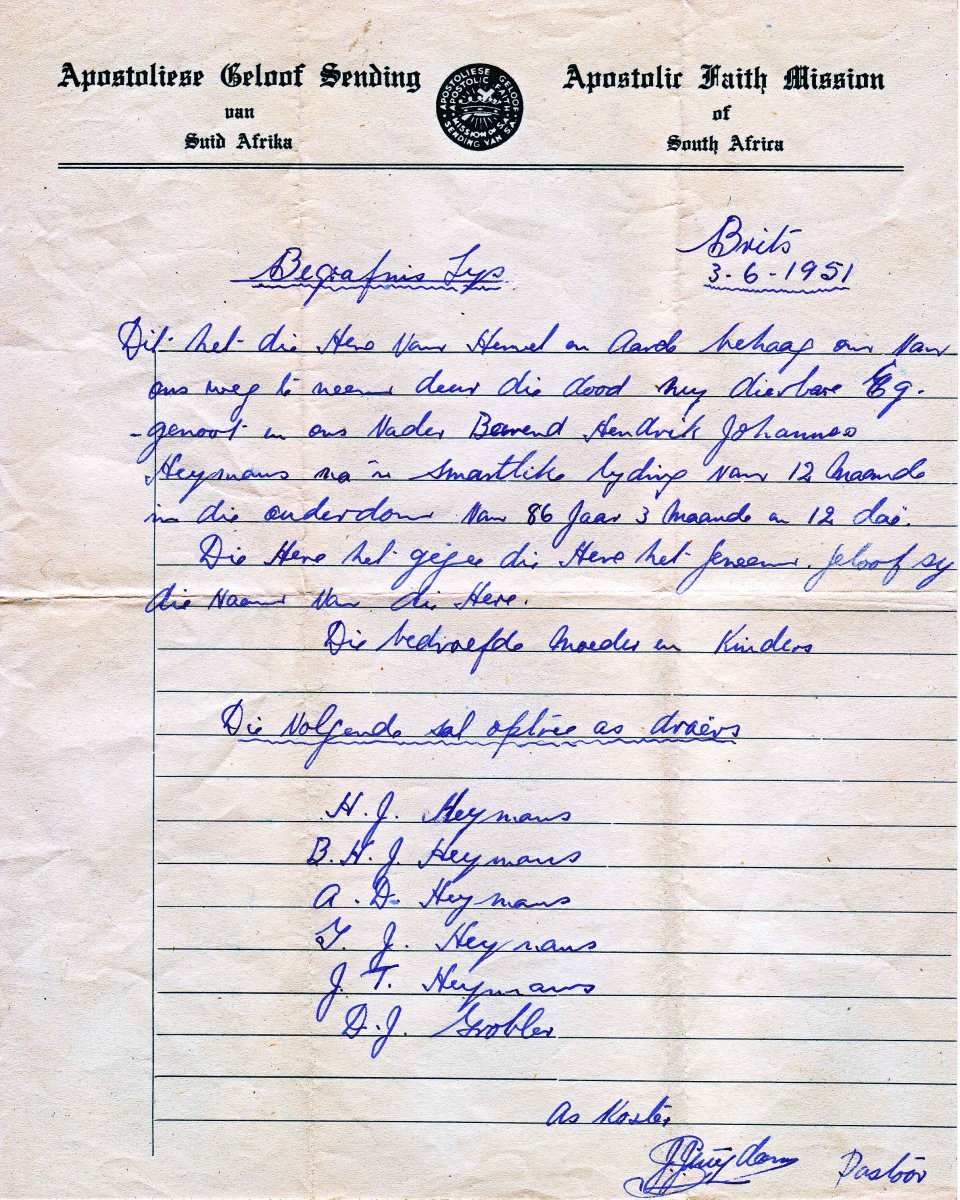 Apostoliese Geloof Sending
van
Suid Afrika
APOSTOLIESE GELOOF
SENDING VAN S.A.
APOSTOLIC FAITH
MISSION OF S.A.
Apostolic Faith Mission
of
South Africa
Brits
3-6-1951
Begrafnis Lys
Dit het die Here van Hemel en Aarde behaag om van
ons weg te neem deur die dood my dierbare Eg-
-genoot en ons Vader Barend Hendrik Johannes
Heymans na 'n smartlike lyding van 12 maande
in die ouderdom van 86 Jaar 3 maande en 12 daë.
Die Here het gegee die Here het geneem. geloof sy
die Naam van die Here.
Die bedroefde Moeder en Kinders
Die Volgende sal optree as draërs
H. J. Heymans
B. H. J Heymans
A. D. Heymans
J. Heymans
J. T. Heymans
D. J. Grobler
As Koster
Pastoor